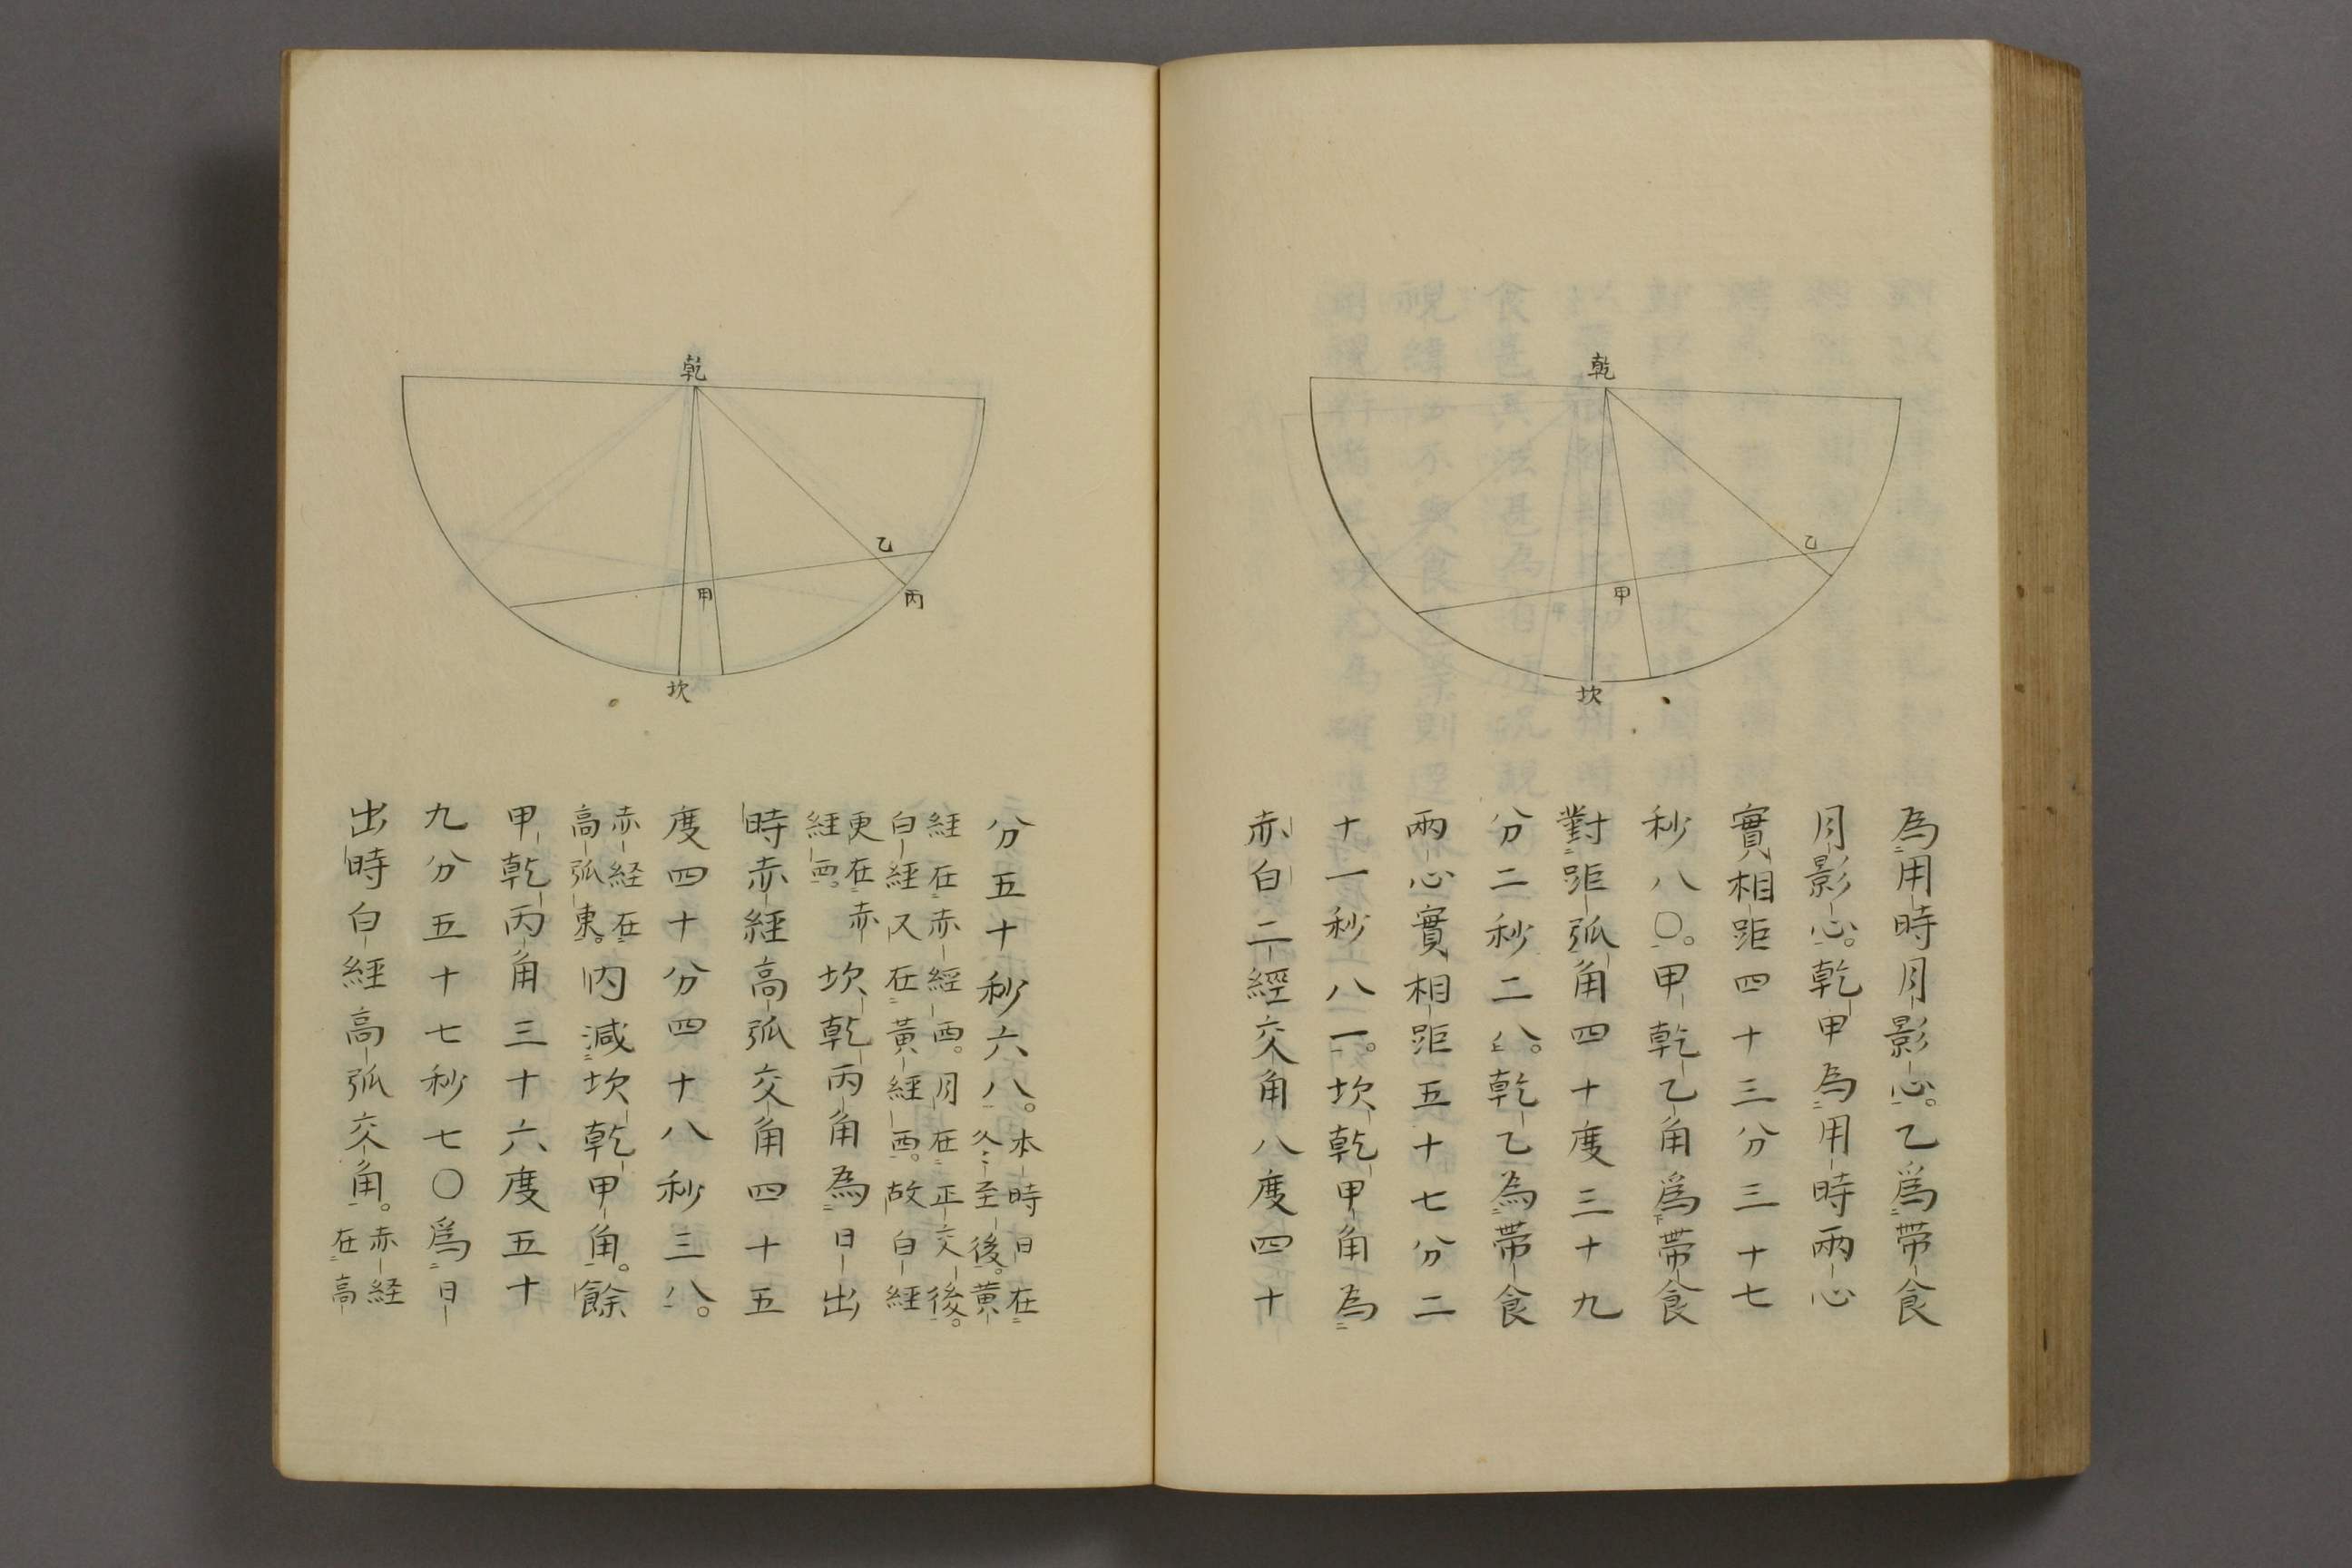 乾
乙
甲
坎
為用時月影心。乙為帯食
月影心。乾甲為用時兩心
實相距四十三分三十七
秒八〇。甲乾乙角爲帯食
對距弧角四十度三十九
分二秒二八。乾乙為帯食
兩心實相距五十七分二
十一秒八一。坎乾甲角為
赤白二經交角八度四十
乾
乙
甲
丙
坎
分五十秒六八。本時日在
冬至後。黄
經在赤經西。月在正交後。
白經又在黃經西。故白經
更在赤
經西。坎乾丙角為日出
時赤經高弧交角四十五
度四十分四十八秒三八。
赤経在
高弧東。内減坎乾甲角。餘
甲乾丙角三十六度五十
九分五十七秒七〇爲日
出時白經高弧交角。赤経
在高